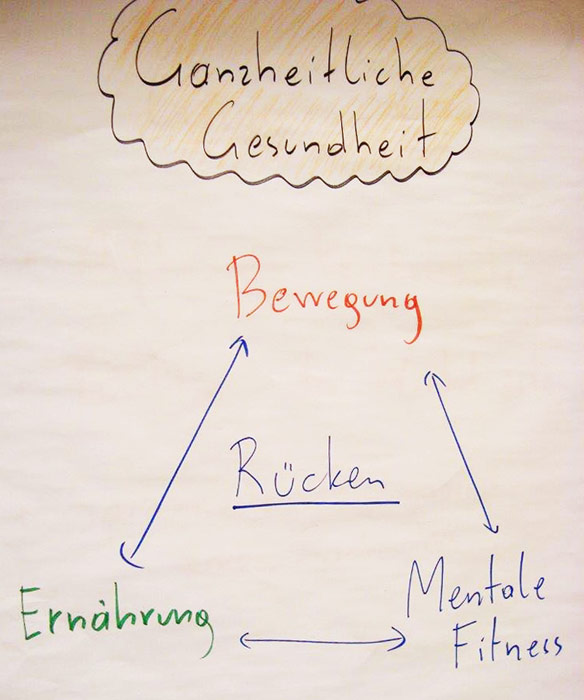 Ganzheitliche
Gesundheit
Bewegung
Rücken
Ernährung
Mentale
Fitness